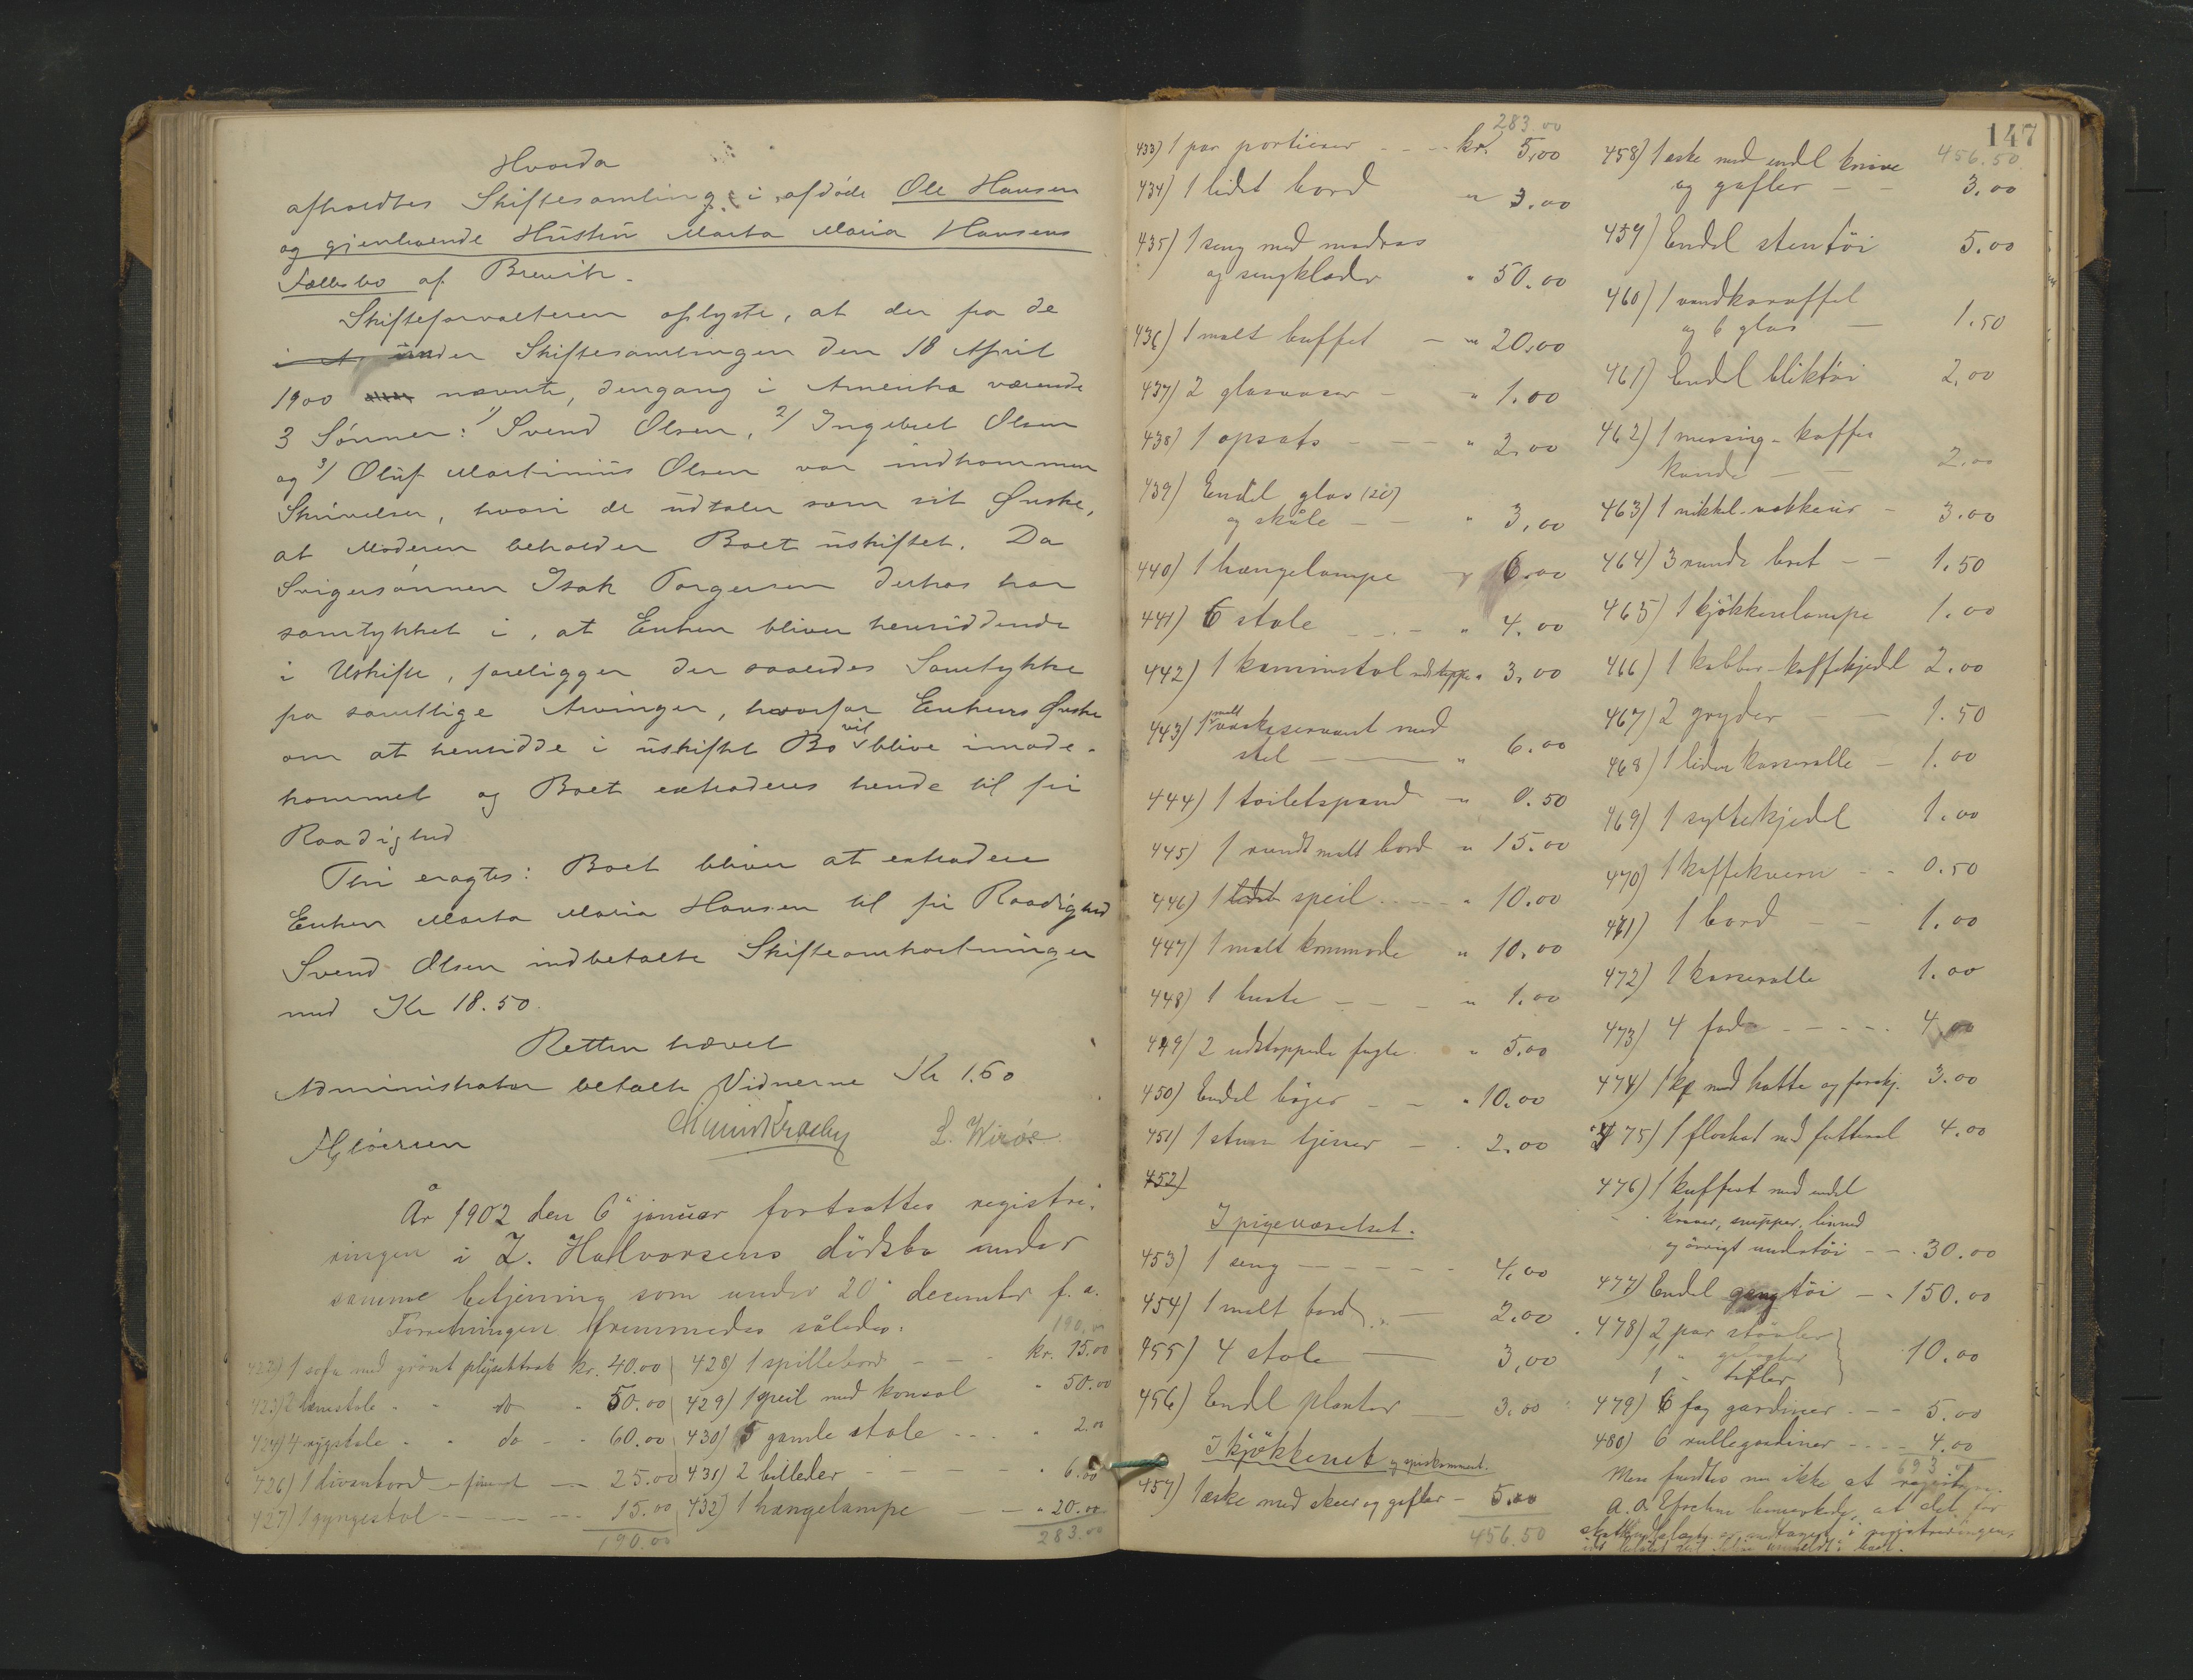 Hvorda
afholdtes Skiftesamling i afdøde Ole Hansen
og gjenlevende Hustru Marta Maria Hansens
Fællesbo af Brevik.
Skifteforvalteren oplyste, at der fra de
under Skiftesamlingen den 18 April
1900 nævnte, dengang i Amerika værende
3 Sønner: 1/ Svend Olsen, 2/ Ingebret Olsen
og 3/ Oluf Martinius Olsen var indkommen
Skrivelser, hvori de udtaler som sit Ønske,
at Moderen beholder Boet uskiftet. Da
Svigersønnen Isak Torgersen derhos har
samtykket i, at Enken bliver hensiddende
i Uskifte, foreligger der saaledes Samtykke
fra samtlige Arvinger, hvorfor Enkens Ønske
om at hensidde i uskiftet Bo vil blive imøde-
kommet og Boet extraderes hende til fri
Raadighed
Thi eragtes: Boet bliver at extradere
Enken Marta Maria Hansen til fri Raadighed
Svend Olsen indbetalte Skifteomkostninger
med Kr 18.50.
Retten hævet
Administrator betalte Vidnerne Kr 1.60
L. Wirøe
År 1902 den 6 januar fortsattes registre-
ringen i Z. Halvorsens dødsbo under
samme betjening som under 20 december f. a.
Forretningen fremmedes således: 190,00
422) 1 sofa med grønt plysektræk kr. 40.00
423) 2 lænestole - - do - 50.00
424) 4 rygstole - - do - - 60.00
426) 1 divanbord - 25.00
427) 1 gyngestol - - - 15.00
190.00
428) 1 spillebord - - - kr. 15.00
429) 1 speil med konsol " 50.00
430) 5 gamle stole - - - " 2.00
431) 2 billeder - - - - " 6.00
432) 1 hængelampe - - " 20.00
283.00
283.00
433) 1 par portierer - - - kr. 5,00
434) 1 lidet bord " 3.00
435) 1 seng med madras
og sengklæder " 50.00
436) 1 malt buffet - " 20,00
437) 2 glasvaser - " 1.00
438) 1 opsats - - - " 2.00
439) Endel glas
og skåle - - " 3,00
440) 1 hængelampe " 6.00
441) 6 stole - - - " 4.00
442) 1 kaminstol " 3,00
443) 1 malt vaskeservant med
stel - - " 6.00
444) 1 toiletspand " 0.50
445) 1 rundt malt bord " 15.00
446) 1 lidet speil - - - " 10.00
447) 1 malt kommode " 10.00
448) 1 buste - - - " 1.00
449) 2 udstoppede fugle " 5.00
450) Endel bøger - - " 10.00
451) 1 stum tjener - - 2.00
452)
I pigeværelset.
453) 1 seng - - - - - 4.00
454) 1 malt bord - 2.00
455) 4 stole - 3,00
456) Endel planter - 3.00
I kjøkkenet og spiskammeret.
457) 1 æske med skeer og gafler - 5.00
456.50
147
456.50
458) 1 eske med endel knive
og gafler - - 3.00
459) Endel stentøi 5.00
460) 1 vandkaraffel
og 6 glas - 1.50
461) Endel bliktøi 2,00
462) 1 messing-kaffe
kande - - 2.00
463) 1 nikkel - 3.00
464) 3 runde bret - - 1.50
465) 1 kjøkkenlampe 1.00
466) 1 kobber-kaffekjedel 2.00
467) 2 gryder - - 1.50
468) 1 liden kasserolle - 1.00
469) 1 syltekjedel 1.00
470) 1 kaffekvern - - 0.50
471) 1 bord - - 1.00
472) 1 kasserolle 1.00
473) 4 fade - - - - 4,00
474) 1 med hatte og forskj. 3.00
475) 1 floshat med futteral 4.00
476) 1 kuffert med endel
kraver, snipper, linned
og øvrigt undertøi - - 30.00
477) Endel gangtøi - - 150.00
478) 2 par støvler
1 " galoscher
1 - tøfler 10.00
479) 6 fag gardiner - - - 5.00
480) 6 rullegardiner - - - - 4.00
693
Mere fandtes nu ikke at registrere.